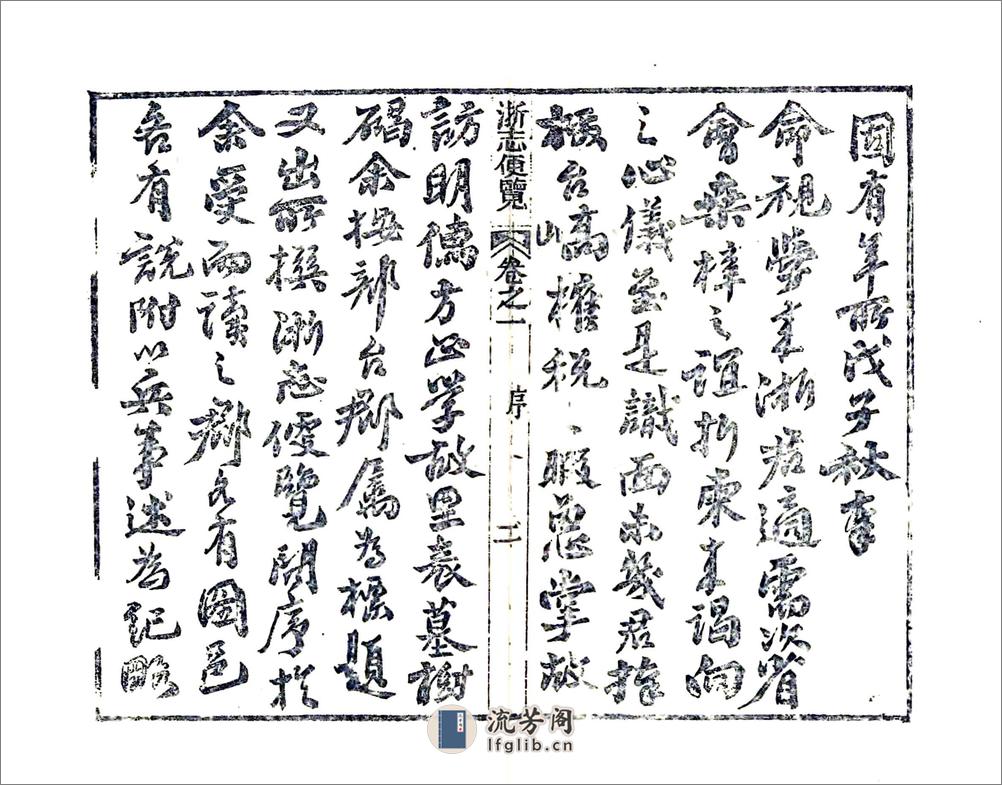 國有年所戊子秋奉
命視學來浙君適需次省
會桑梓之誼折柬來謁向
之心儀至是識面未幾君指
㨂台嶠榷税之暇蒐掌故
浙志便覽 卷之一 序 二
訪明儒方正學故里表墓樹
碣余按部台郡屬為標題
又出所撰浙志便覽問序於
余受而讀之郡各有圖邑
各有說附以兵事述為記略
流芳阁
lfglib.cn